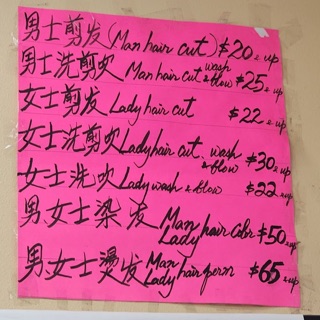 男士剪发 (Man hair cut) $20 & up
男士洗剪吹 Man hair cut wash & blow $25 & up
女士剪发 Lady hair cut $22 & up
女士洗剪吹 Lady hair cut. wash & blow $30 & up
女士洗吹 Lady wash & blow $22 & up
男女士染发 Man Lady hair color $50 & up
男女士烫发 Man Lady hair perm $65 & up